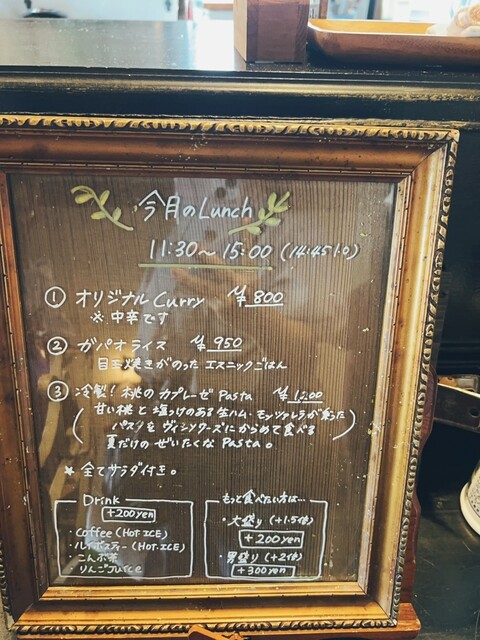 今月のLunch
11:30〜15:00 (14:45 l.o)
① オリジナルCurry ¥800
※中辛です
② ガパオライス ¥950
目玉焼きがのった エスニックごはん
③ 冷製!桃のカプレーゼPasta ¥1200
(甘い桃と塩っけのある生ハム・モッツァレラが乗った
パスタを ヴィシソワーズにからめて食べる
夏だけの ぜいたくな Pasta。)
★全てサラダ付き。
Drink
+200yen
・Coffee (HOT.ICE)
・ルイボスティー (HOT.ICE)
・こんぶ茶
・りんごJUICE
もっと食べたい方は…
・大盛り (+1.5倍)
+200yen
・男盛り (+2倍)
+300yen